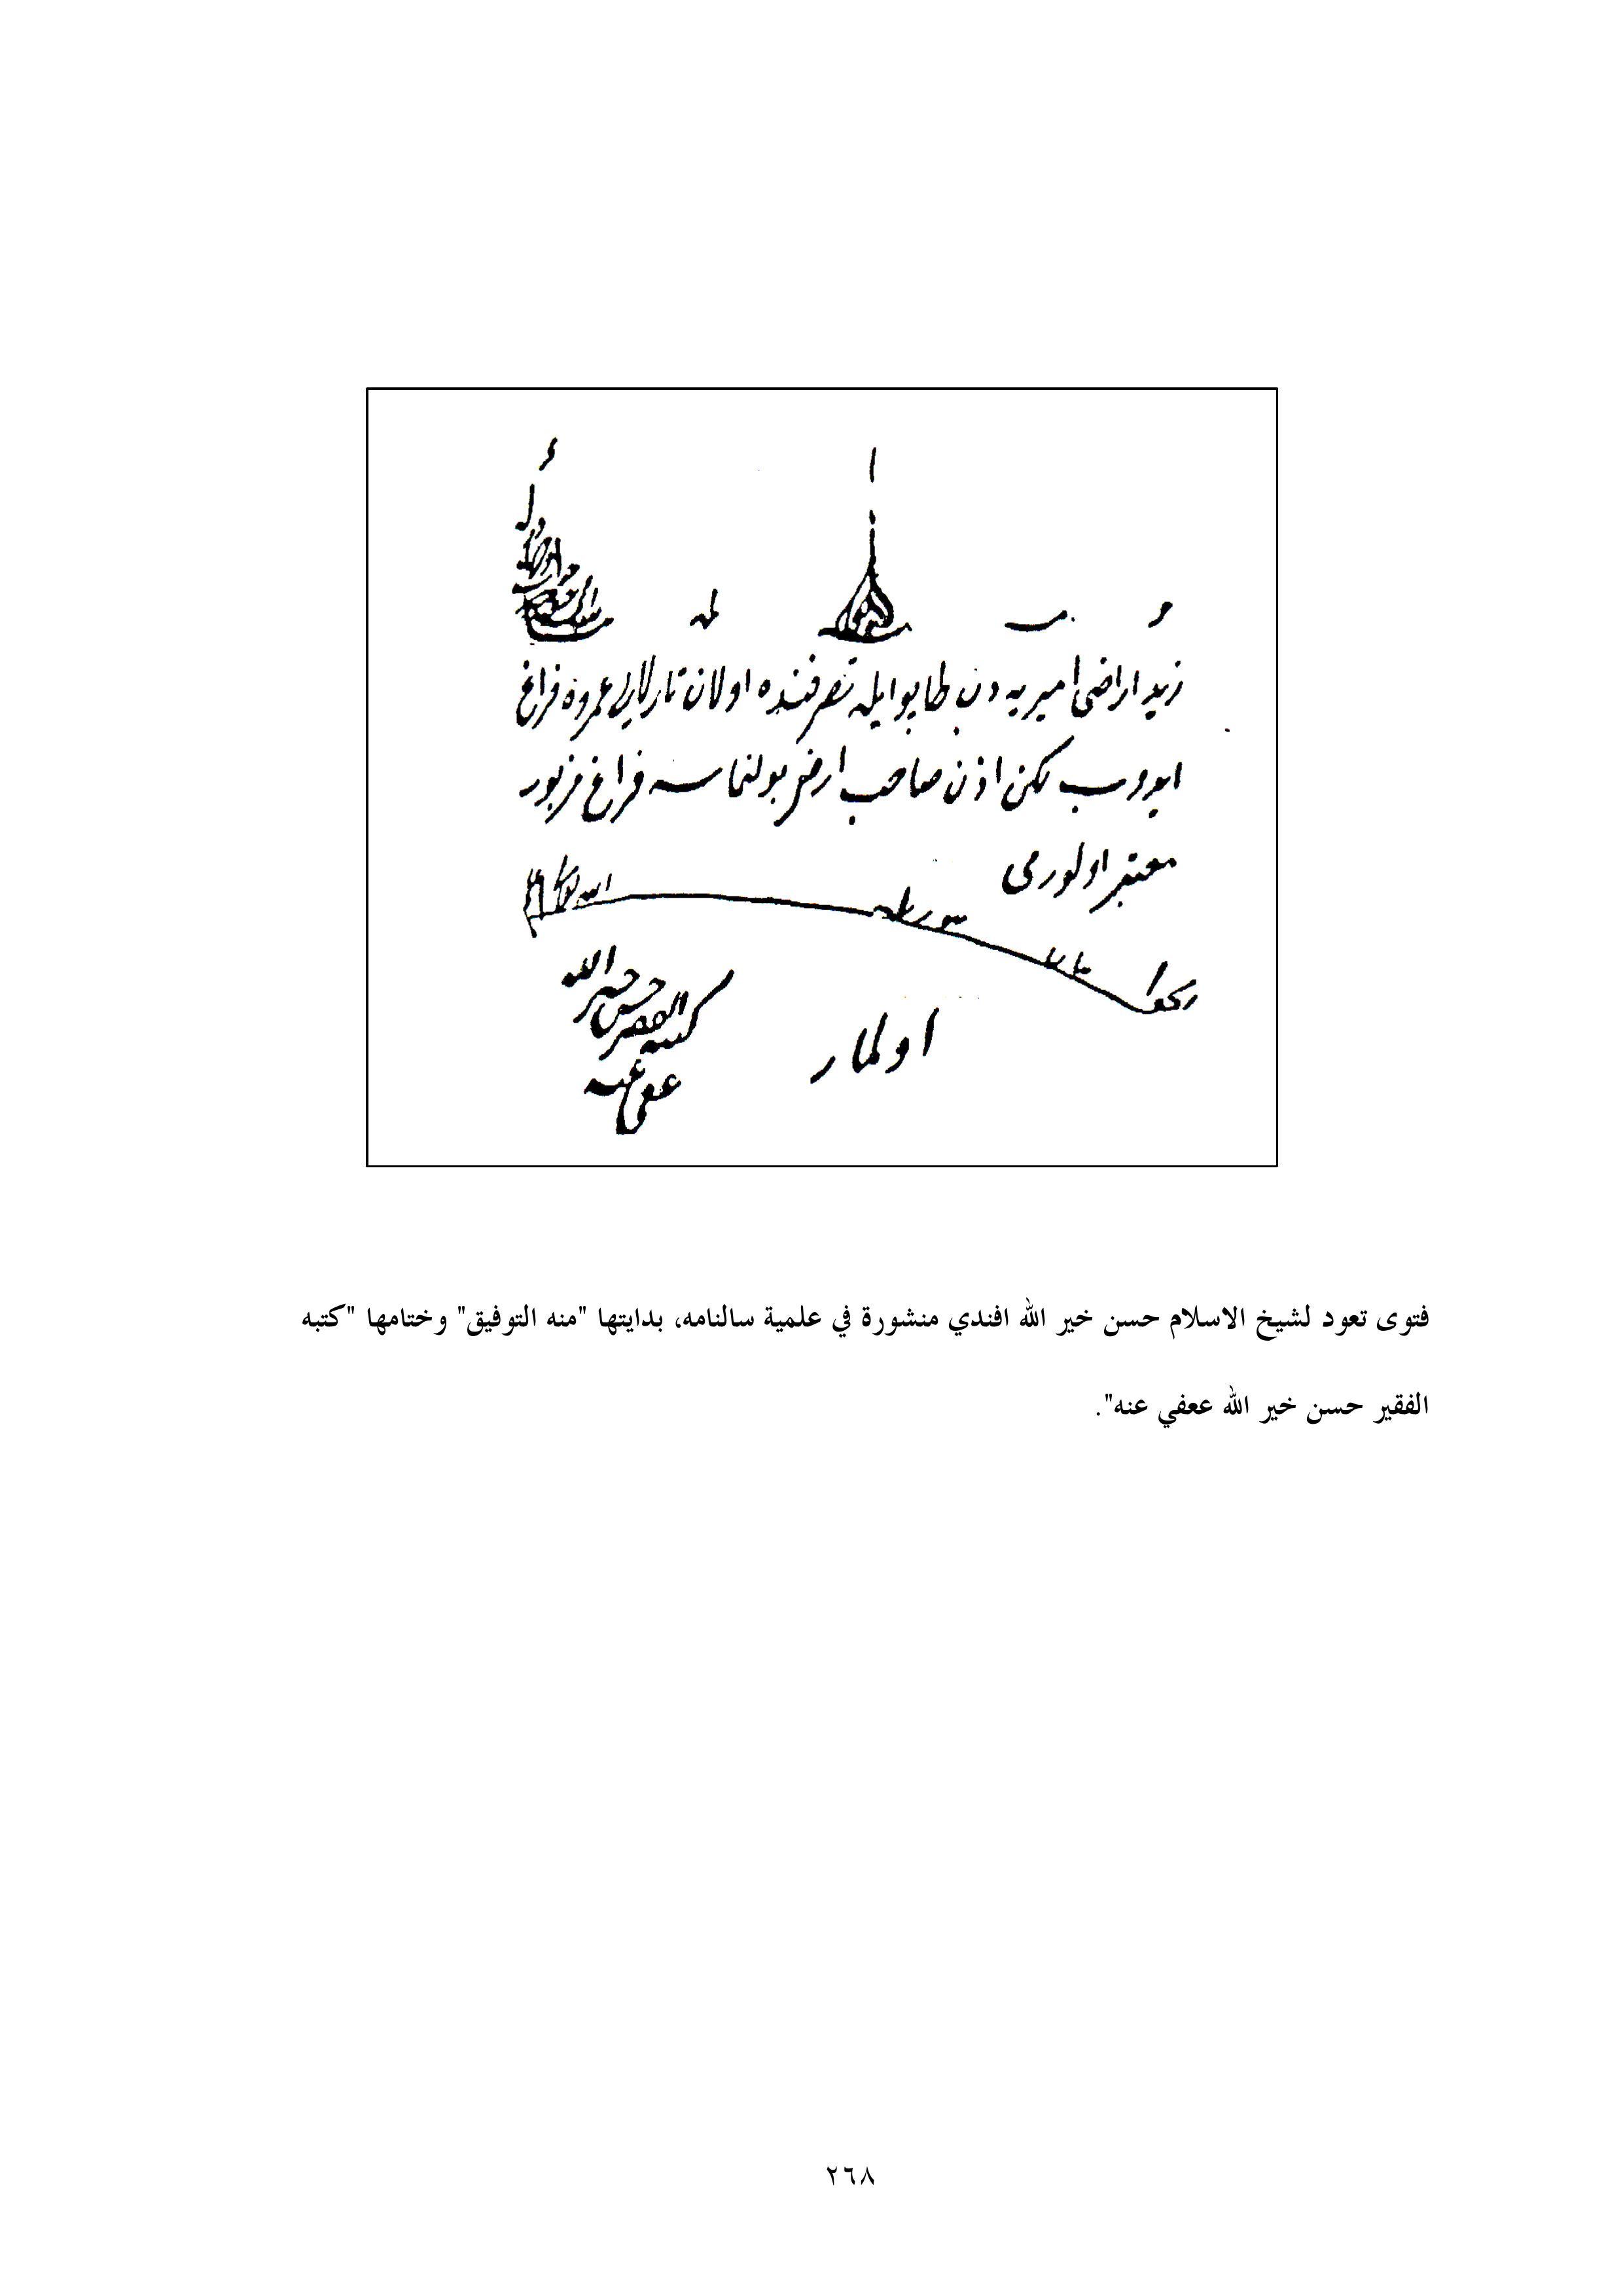 زيد اراضى اميريه دن طاپو ايله تصرفنده اولان تارلالرى عمروه فراغ
ايدوب لكن اذن صاحب ارض بولنماسه فراغ مزبور
معتبر اولورمى
الجواب
اولماز
كتبه الفقير حسن خير الله
عفي عنه
فتوى تعود لشيخ الاسلام حسن خير الله افندي منشورة في علمية سالنامه، بدايتها "منه التوفيق" وختامها "كتبه
الفقير حسن خير الله ععفي عنه".
٢٦٨